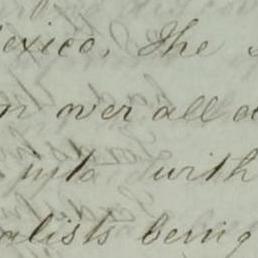 Mexico. The
n over all
into with
alists being